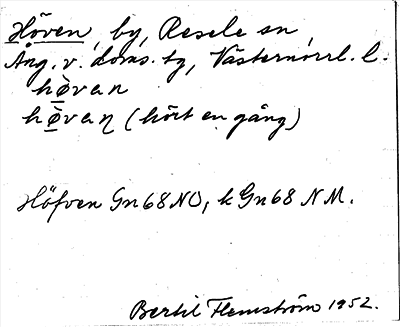 Höven, by, Resele sn,
Ång. v. doms. tg, Västernorrl. l.
hø̀van
hø̀vaṇ (hört en gång)
Höfven Gn 68 NO, k Gn 68 NM.
Bertil Flemström 1952.